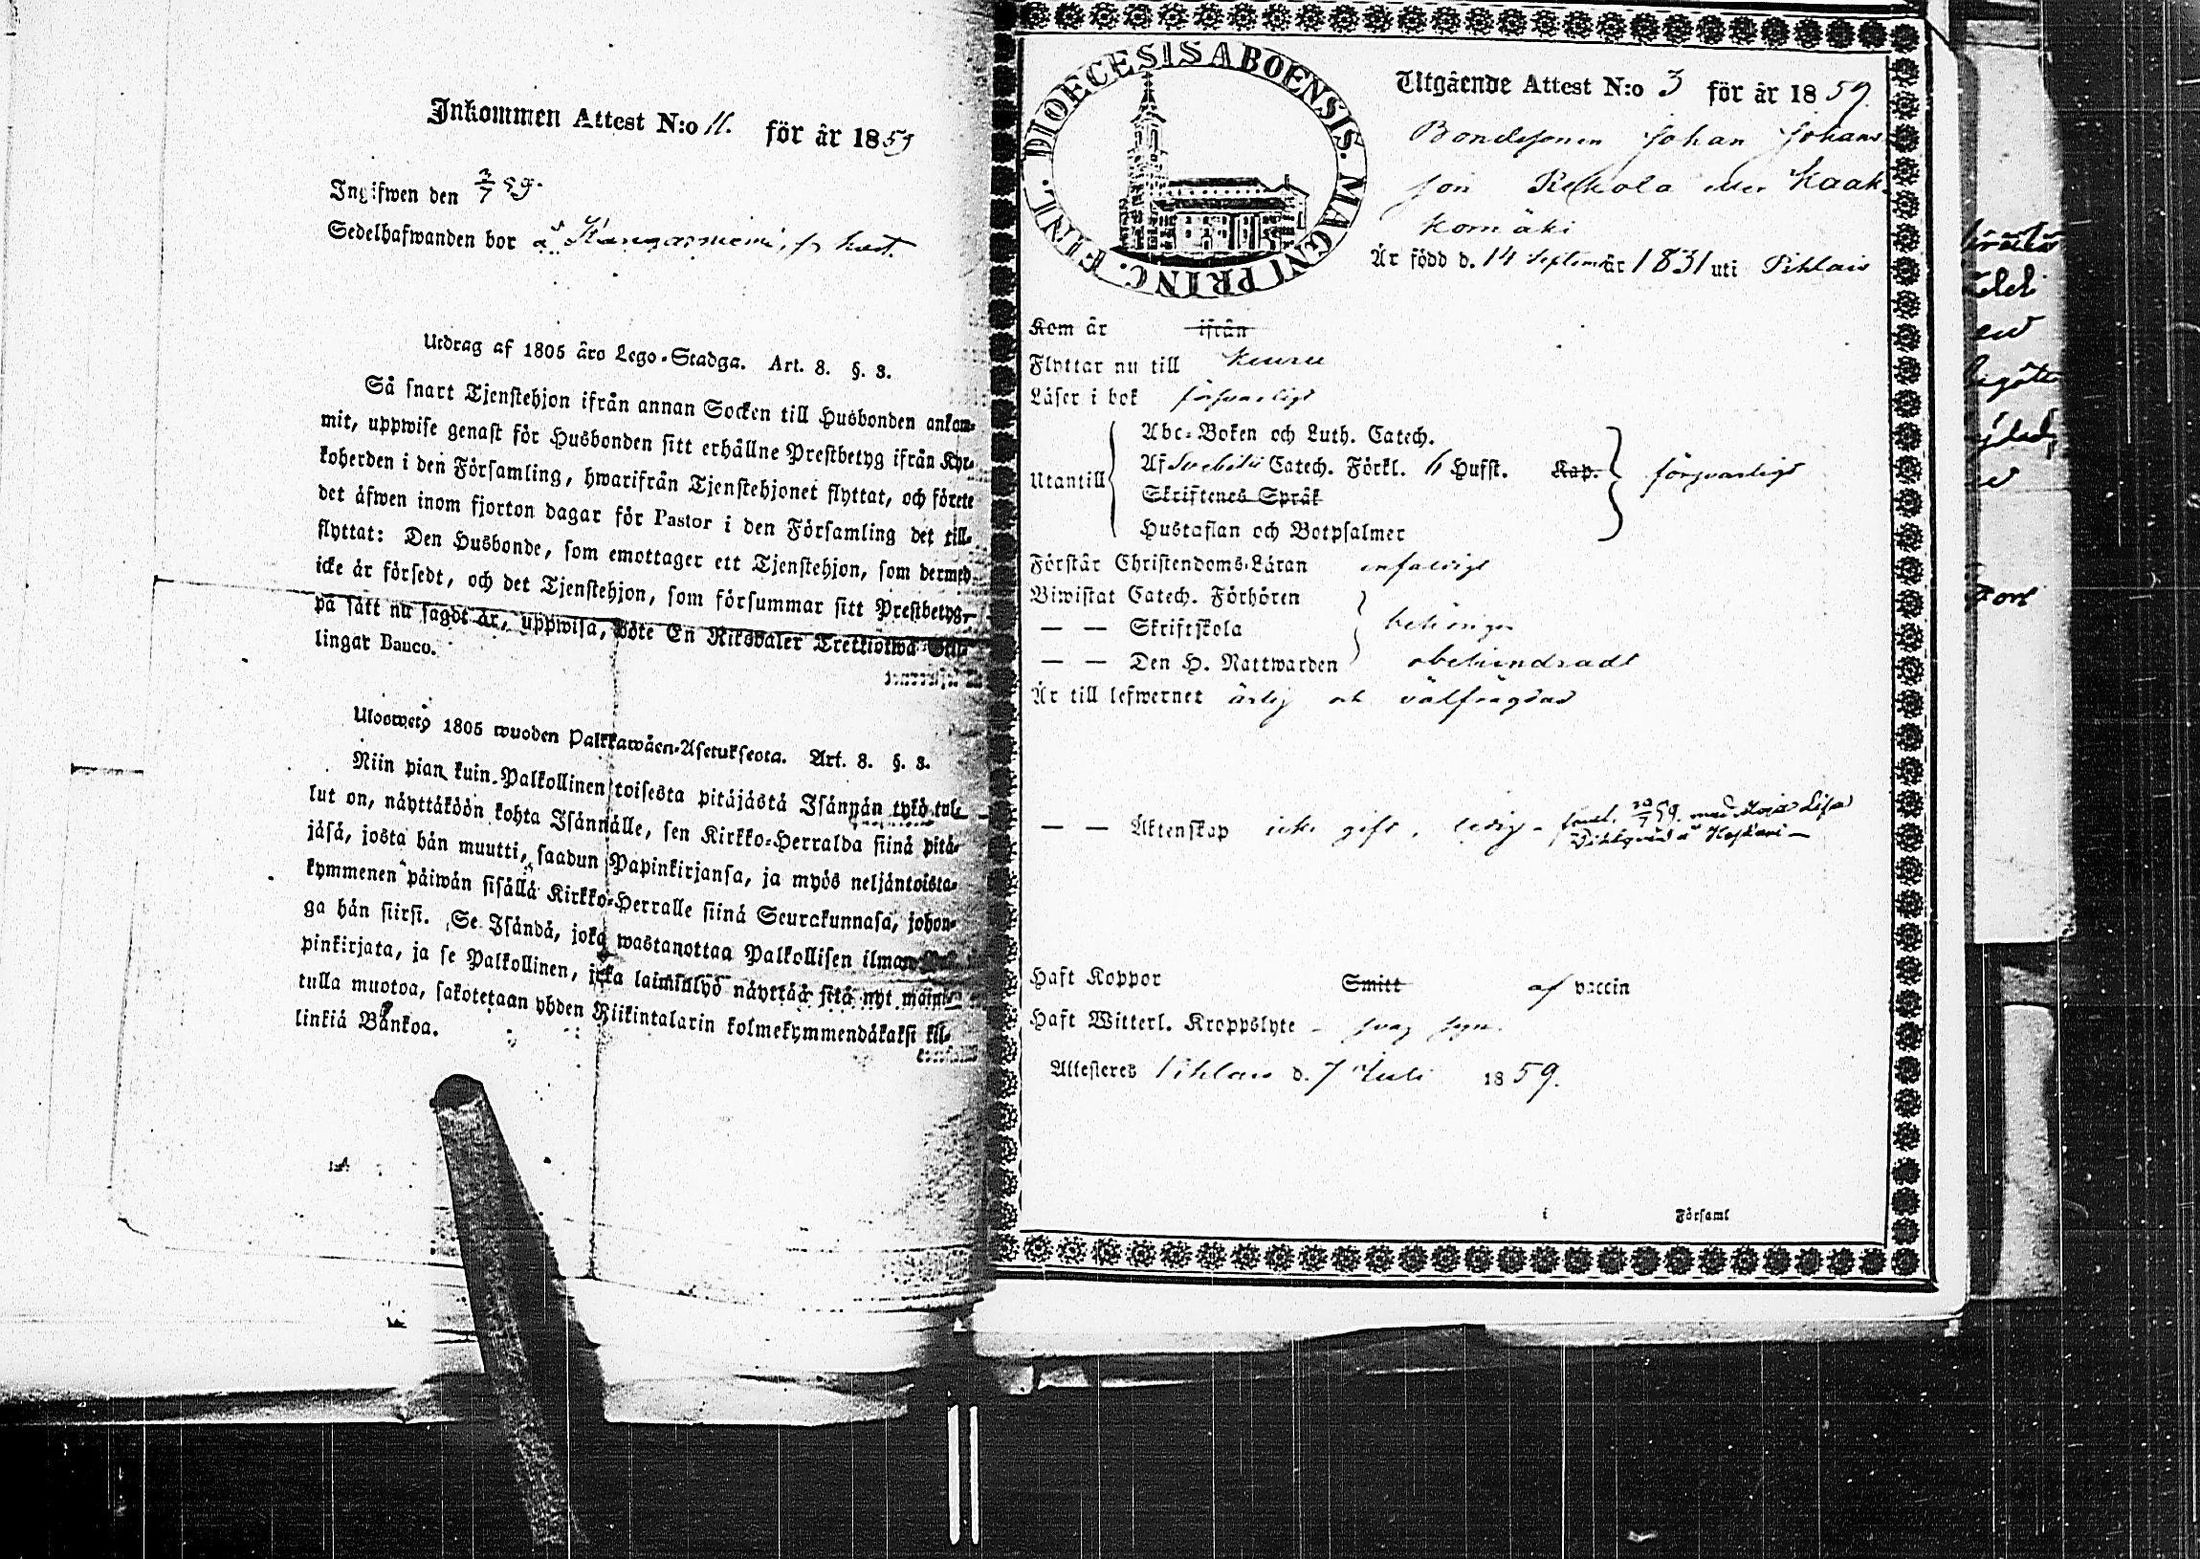 Inkommen Attest N:o 11. för år 1859
Ingifwen den 7 59.
Sedelhafwanden bor å
Utdrag af 1805 års Lego-Stadga. Art. 8. §. 3.
Så snart Tjenstehjon ifrån annan Socken till Husbonden ankom-
mit, uppwise genast för Husbonden sitt erhållne Prestbetyg ifrån Kyr-
koherden i den Församling, hwarifrån Tjenstehjonet flyttat, och förete
det äfwen inom fjorton dagar för Pastor i den Församling det till-
flyttat: Den Husbonde, som emottager ett Tjenstehjon, som dermed
icke är försedt, och det Tjenstehjon, som försummar sitt Prestbetyg,
på sätt nu sagdt är, uppwisa, böte En Riksdaler Trettiotwå Skil-
lingar Banco.
Uloswety 1805 wuoden Palkkawäen-Asetuksesta. Art. 8. §. 3.
Niin pian kuin Palkollinen toisesta pitäjästä Isännän tykö tul-
lut on, näyttäköön kohta Isännälle, sen Kirkko-Herralda siinä pitä-
jäsä, josta hän muutti, saadun Papinkirjansa, ja myös neljäntoista-
kymmenen päiwän sisällä Kirkko-Herralle siinä Seurakunnasa, johon-
ga hän siirsi. Se Isändä, joka wastanottaa Palkollisen ilman
pinkirjata, ja se Palkollinen, joka laiminlyö näyttää sitä nyt
tulla muotoa, sakotetaan yhden Riikintalarin kolmekymmendäkaksi kil-
linkiä Bankoa.
DIOECESIS ABOENSIS. MAGNI PRINC. FINL.
Utgående Attest N:o 3 för år 1859.
Bondesonen Johan Johans
son Rekola eller Kaak-
komäki
Är född d. 14 September 1831 uti Pihlais
Kom år ifrån
Flyttar nu till Keuru
Läser i bok försvarligt
Abc-Boken och Luth. Catech.
Utantill Af Svebilii Catech. Förkl. 6 Hufst. Kap. försvarligt
Skriftenes Språk
Hustaflan och Botpsalmer
Förstår Christendoms-Läran enfaldigt
Biwistat Catech. Förhören
— — Skriftskola behörigen
— — Den H. Nattwarden obehindradt
Är till lefwernet ärlig och välfrägdad
— — Äktenskap icke gift, ledig
Haft Koppor Smitt af vaccin
Haft Witterl. Kroppslyte - svag syn.
Attesteras Pihlais d. 7 Juli 1859.
i Församl